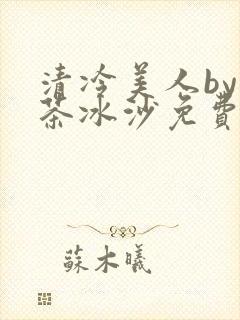 清冷美人by
茶冰沙免費
蘇木曦